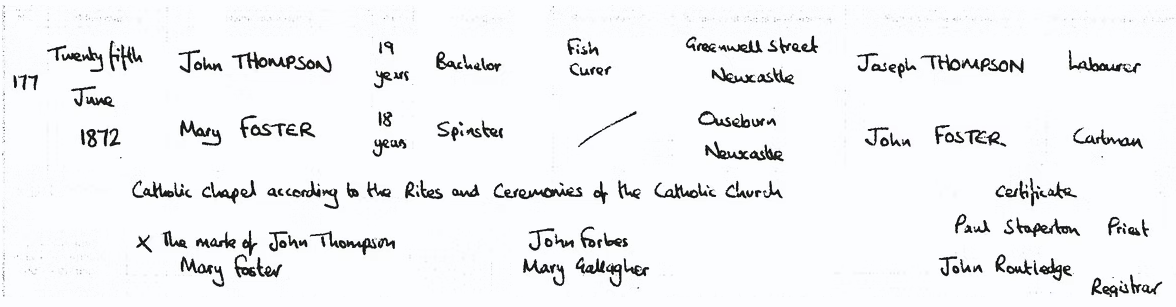 177 Twenty fifth June 1872
John THOMPSON 19 years Bachelor Fish Curer Greenwell Street Newcastle Joseph THOMPSON Labourer
Mary FOSTER 18 years Spinster Ouseburn Newcastle John FOSTER Cartman
Catholic Chapel according to the Rites and Ceremonies of the Catholic Church certificate
X The mark of John Thompson
Mary Foster
John Forbes
Mary Gallagher
Paul Staperton Priest
John Routledge Registrar